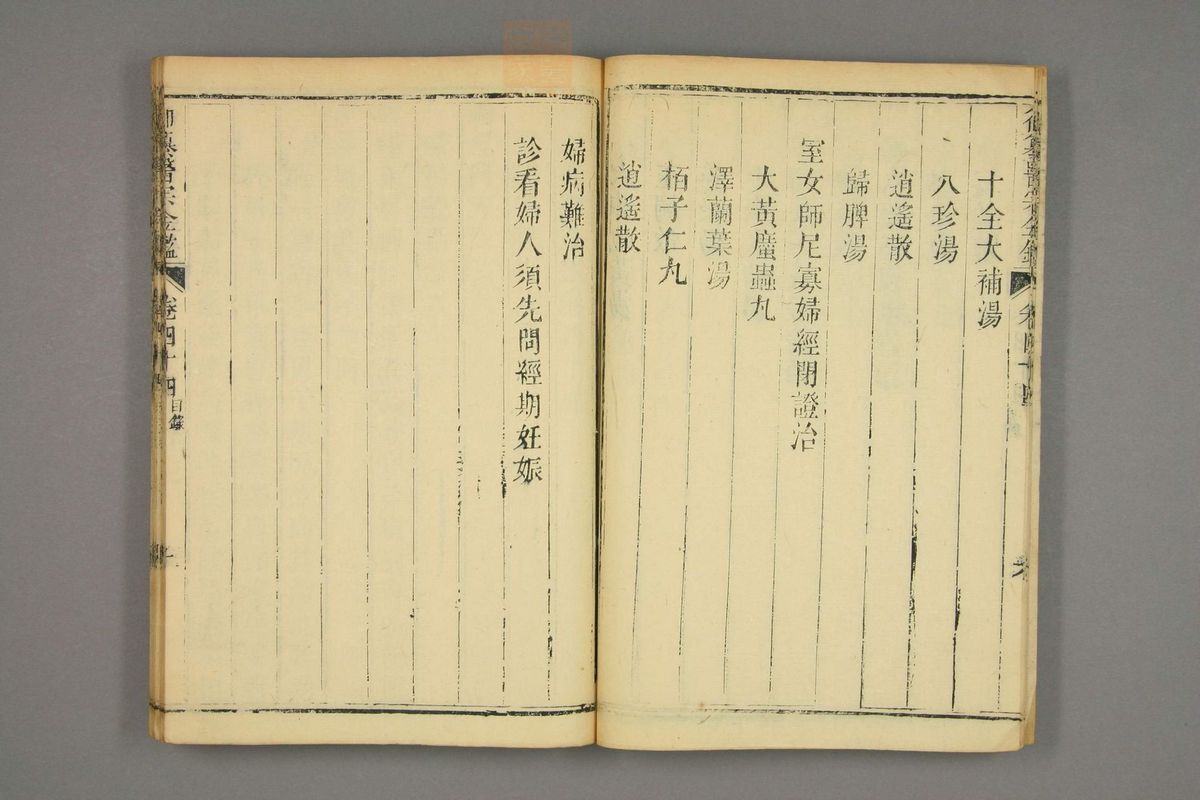 十全大補湯
八珍湯
逍遙散
歸脾湯
室女師尼寡婦經閉證治
大黃䗪蟲丸
澤蘭葉湯
栢子仁丸
逍遙散
婦病難治
診看婦人須先問經期妊娠
御纂醫宗金鑑
卷四十四
目錄